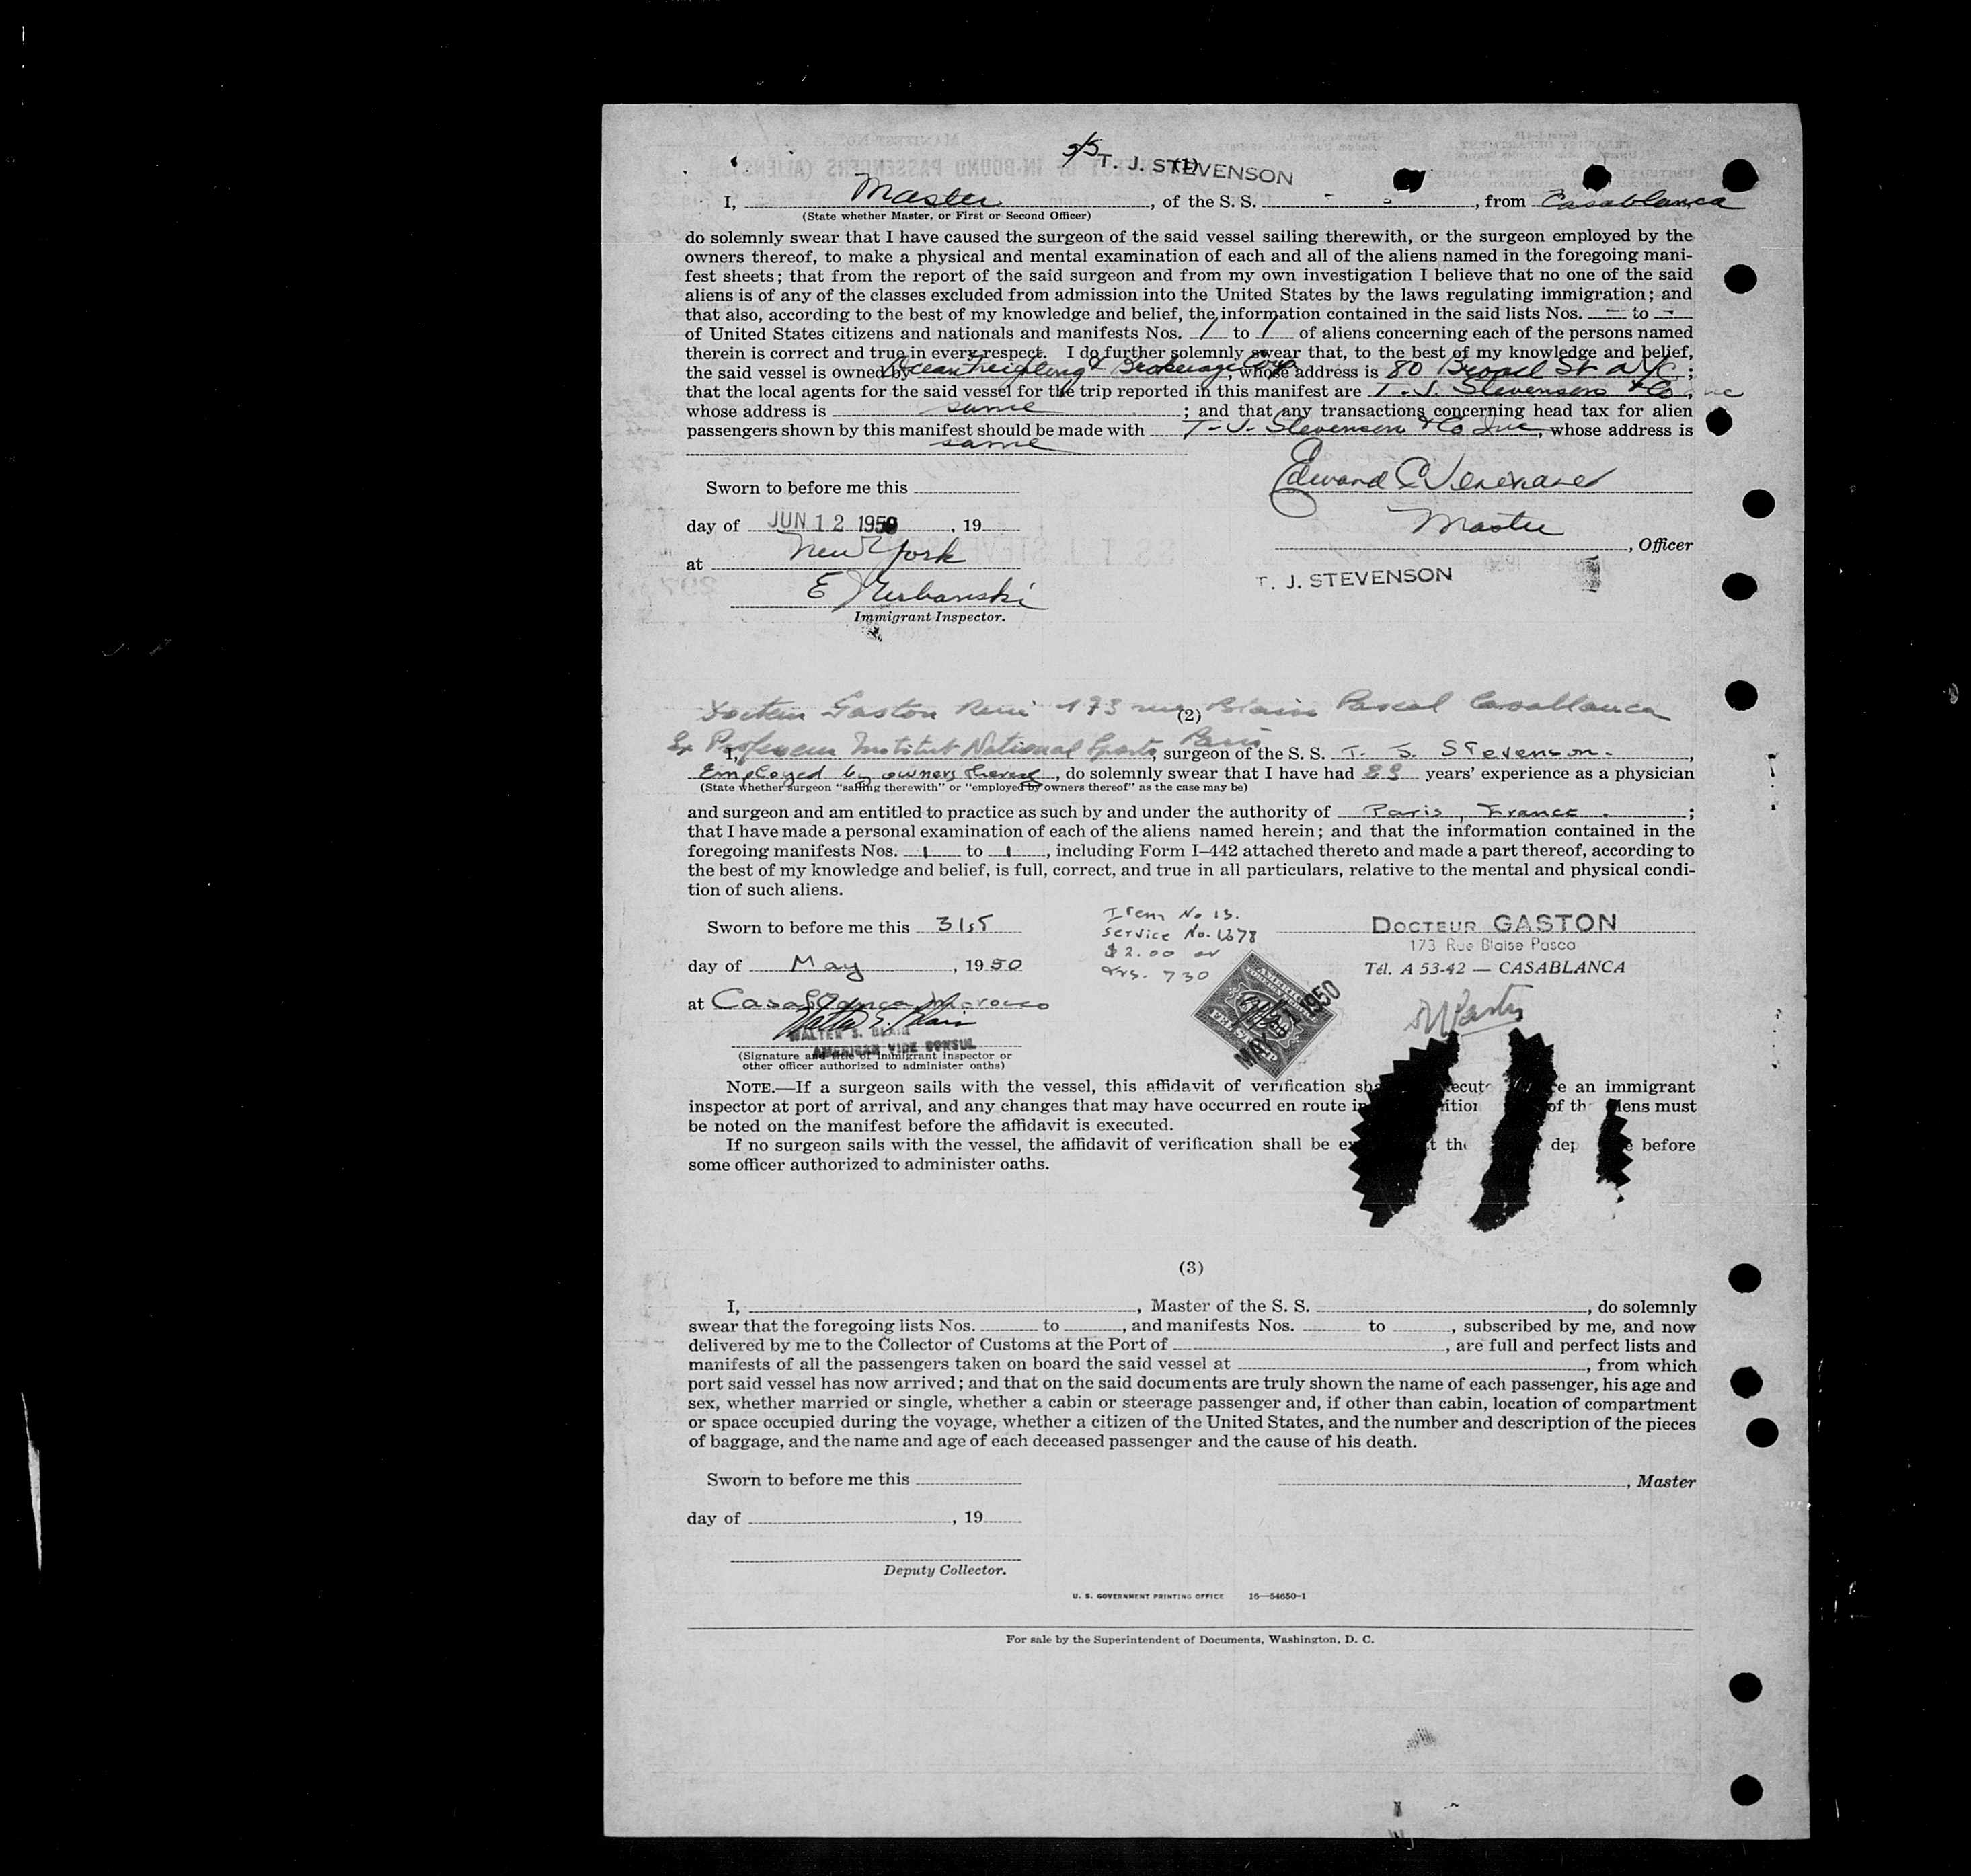 S/S T. J. STEVENSON
(1)
I, Master, of the S. S. - -, from Casablanca
(State whether Master, or First or Second Officer)
do solemnly swear that I have caused the surgeon of the said vessel sailing therewith, or the surgeon employed by the
owners thereof, to make a physical and mental examination of each and all of the aliens named in the foregoing mani-
fest sheets; that from the report of the said surgeon and from my own investigation I believe that no one of the said
aliens is of any of the classes excluded from admission into the United States by the laws regulating immigration; and
that also, according to the best of my knowledge and belief, the information contained in the said lists Nos. — to -
of United States citizens and nationals and manifests Nos. 1 to 1 of aliens concerning each of the persons named
therein is correct and true in every respect. I do further solemnly swear that, to the best of my knowledge and belief,
the said vessel is owned by Ocean Freighting & Brokerage Corp, whose address is 80 Broad St NYC;
that the local agents for the said vessel for the trip reported in this manifest are T. J. Stevenson & Co, Inc
whose address is same; and that any transactions concerning head tax for alien
passengers shown by this manifest should be made with T. J. Stevenson & Co Inc, whose address is
same
Sworn to before me this
Edward C
day of JUN 12 1950, 19
Master, Officer
at New York
T. J. STEVENSON
E Urbanski
Immigrant Inspector.
Docteur Gaston René 173 rue Blaise Pascal Casablanca
(2)
Ex Professeur Institut National Sports Paris
I, surgeon of the S. S. T. J. Stevenson.,
Employed by owners thereof, do solemnly swear that I have had years' experience as a physician
(State whether surgeon "sailing therewith" or "employed by owners thereof" as the case may be)
and surgeon and am entitled to practice as such by and under the authority of Paris, France.;
that I have made a personal examination of each of the aliens named herein; and that the information contained in the
foregoing manifests Nos. 1 to 1, including Form I–442 attached thereto and made a part thereof, according to
the best of my knowledge and belief, is full, correct, and true in all particulars, relative to the mental and physical condi-
tion of such aliens.
Sworn to before me this 31st
day of May, 1950
at Casablanca Morocco
Walter S. Blair
WALTER S. BLAIR
AMERICAN VICE CONSUL
(Signature and title of immigrant inspector or
other officer authorized to administer oaths)
Item No 13.
Service No. 1678
$2.00 or
frs. 730
FEE STAMP
MAY 31 1950
DOCTEUR GASTON
173 Rue Blaise Pasca
Tél. A 53-42 — CASABLANCA
NOTE.—If a surgeon sails with the vessel, this affidavit of verification sha ecut e an immigrant
inspector at port of arrival, and any changes that may have occurred en route in ition of th iens must
be noted on the manifest before the affidavit is executed.
If no surgeon sails with the vessel, the affidavit of verification shall be ex t the dep e before
some officer authorized to administer oaths.
(3)
I, , Master of the S. S. , do solemnly
swear that the foregoing lists Nos. to , and manifests Nos. to , subscribed by me, and now
delivered by me to the Collector of Customs at the Port of , are full and perfect lists and
manifests of all the passengers taken on board the said vessel at , from which
port said vessel has now arrived; and that on the said documents are truly shown the name of each passenger, his age and
sex, whether married or single, whether a cabin or steerage passenger and, if other than cabin, location of compartment
or space occupied during the voyage, whether a citizen of the United States, and the number and description of the pieces
of baggage, and the name and age of each deceased passenger and the cause of his death.
Sworn to before me this
, Master
day of , 19
Deputy Collector.
U. S. GOVERNMENT PRINTING OFFICE 16—54650-1
For sale by the Superintendent of Documents, Washington, D. C.